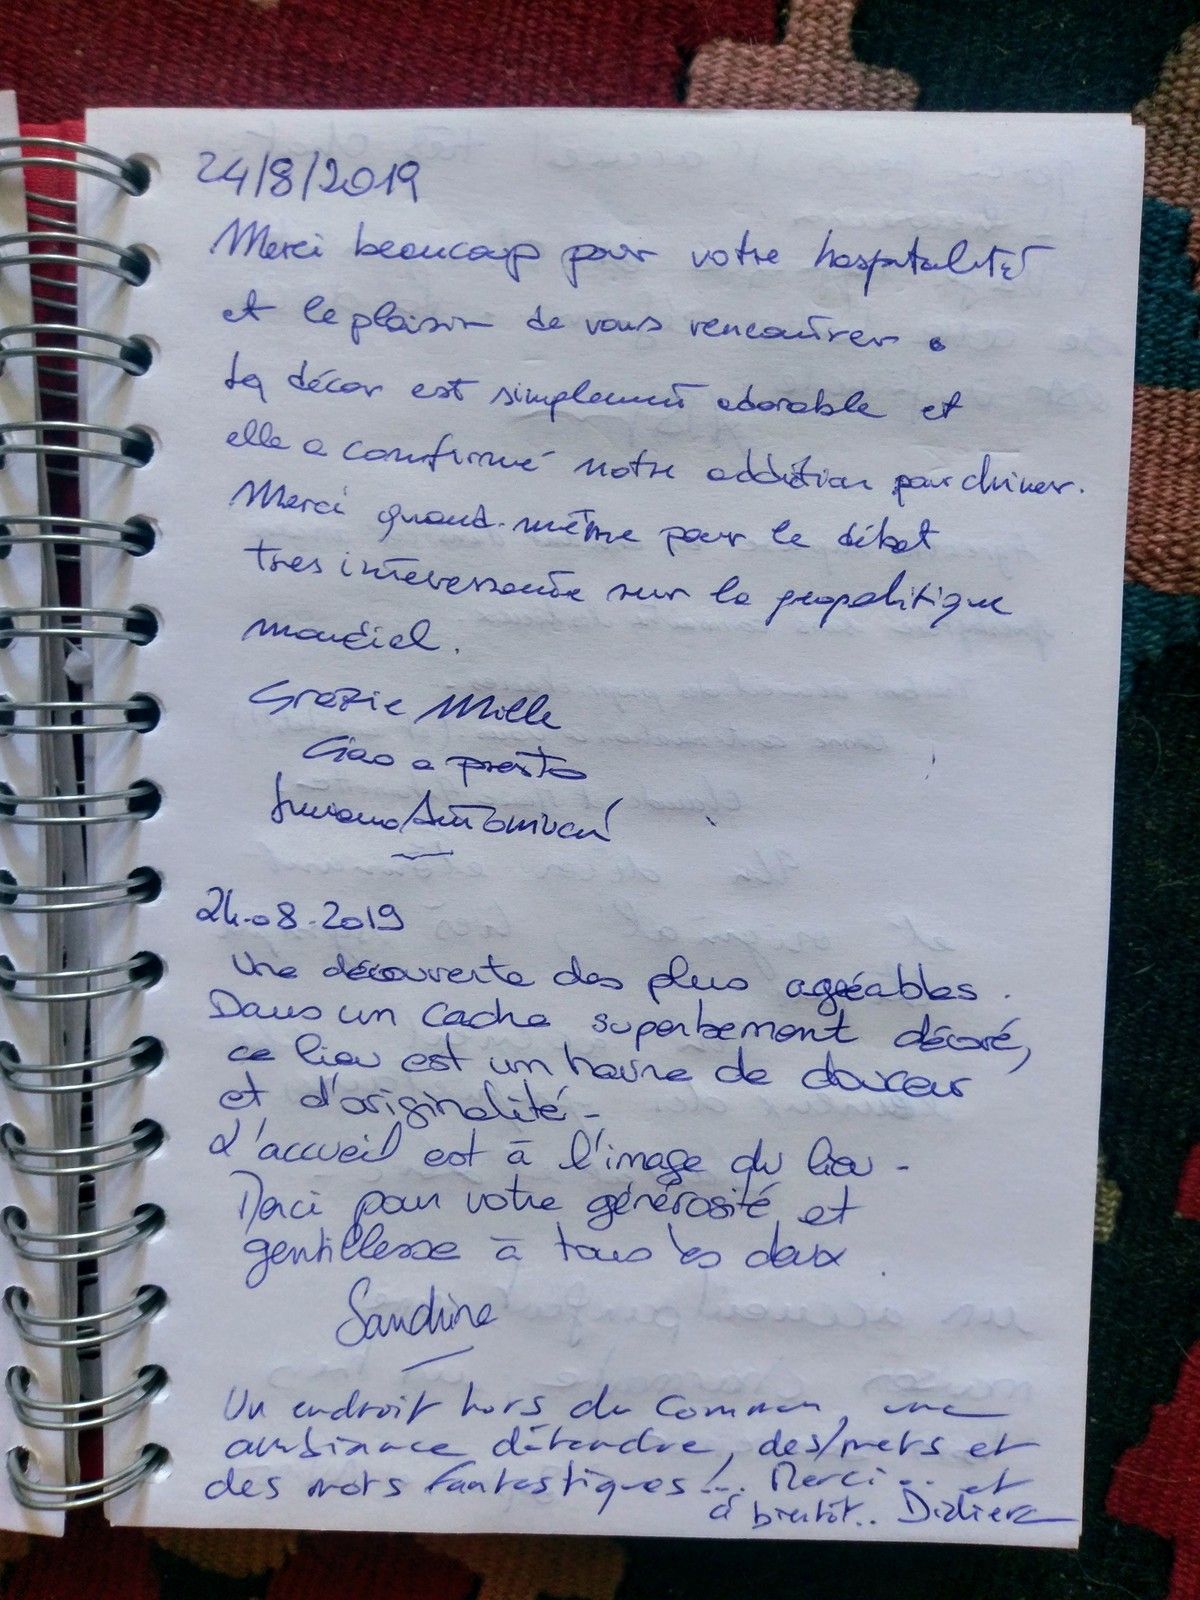 24/8/2019
Merci beaucoup pour votre hospitalité
et le plaisir de vous rencontrer.
La décor est simplement adorable et
elle a confirmé notre addition pour chiner.
Merci quand-même pour le débat
tres interessante sur la geopolitique
mondiel.
Grazie Mille
Ciao a presto
24-08-2019
Une découverte des plus agréables.
Dans un cadre superbement décoré,
ce lieu est un havre de douceur
et d'originalité-
L'accueil est à l'image du lieu-
Merci pour votre générosité et
gentillesse à tous les deux.
Sandrine
Un endroit hors du commun, une
ambiance détendue, des mets et
des mots fantastiques!... Merci... et
à bientôt.. Didier